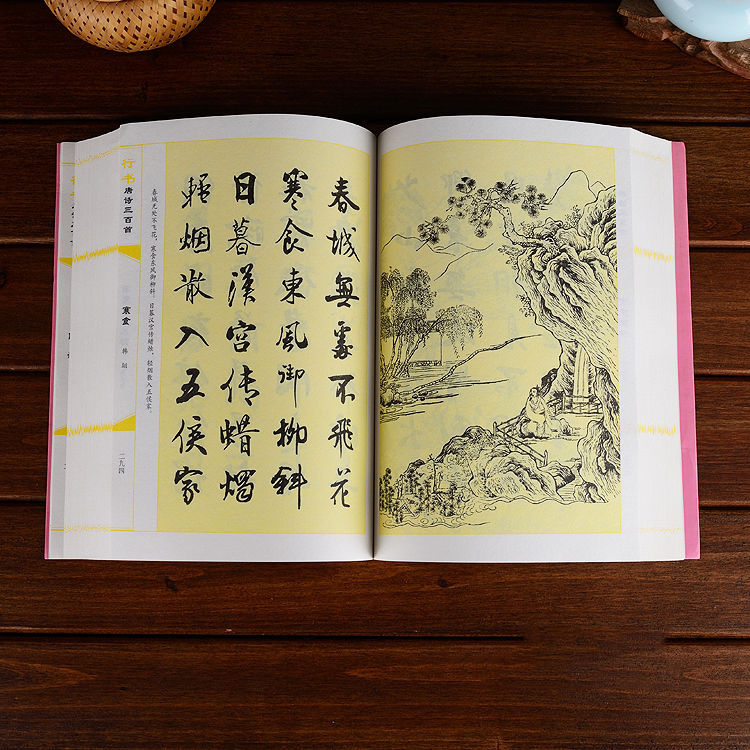 春城無處不飛花
寒食東風御柳斜
日暮漢宮传蜡燭
輕烟散入五侯家
春城无处不飞花，寒食东风御柳斜。日暮汉宫传蜡烛，轻烟散入五侯家。
行书唐诗三百首
寒食
韩翃
二九四